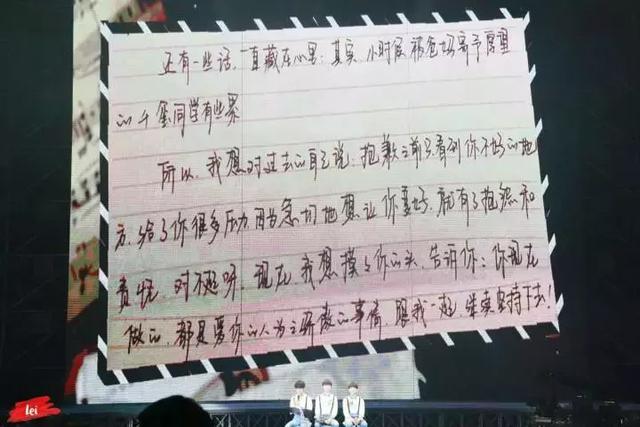 还有一些话，一直藏在心里。其实，小时候被爸妈寄予厚望
的千金同学有些累
所以，我想对过去的自己说：抱歉之前只看到你不好的地
方，给了你很多压力，因为急切地想让你更好，就有了抱怨和
责怪，对不起呀，现在，我想摸摸你的头，告诉你：你现在
做的，都是爱你的人为之骄傲的事情，跟我一起，继续坚持下去！
lei